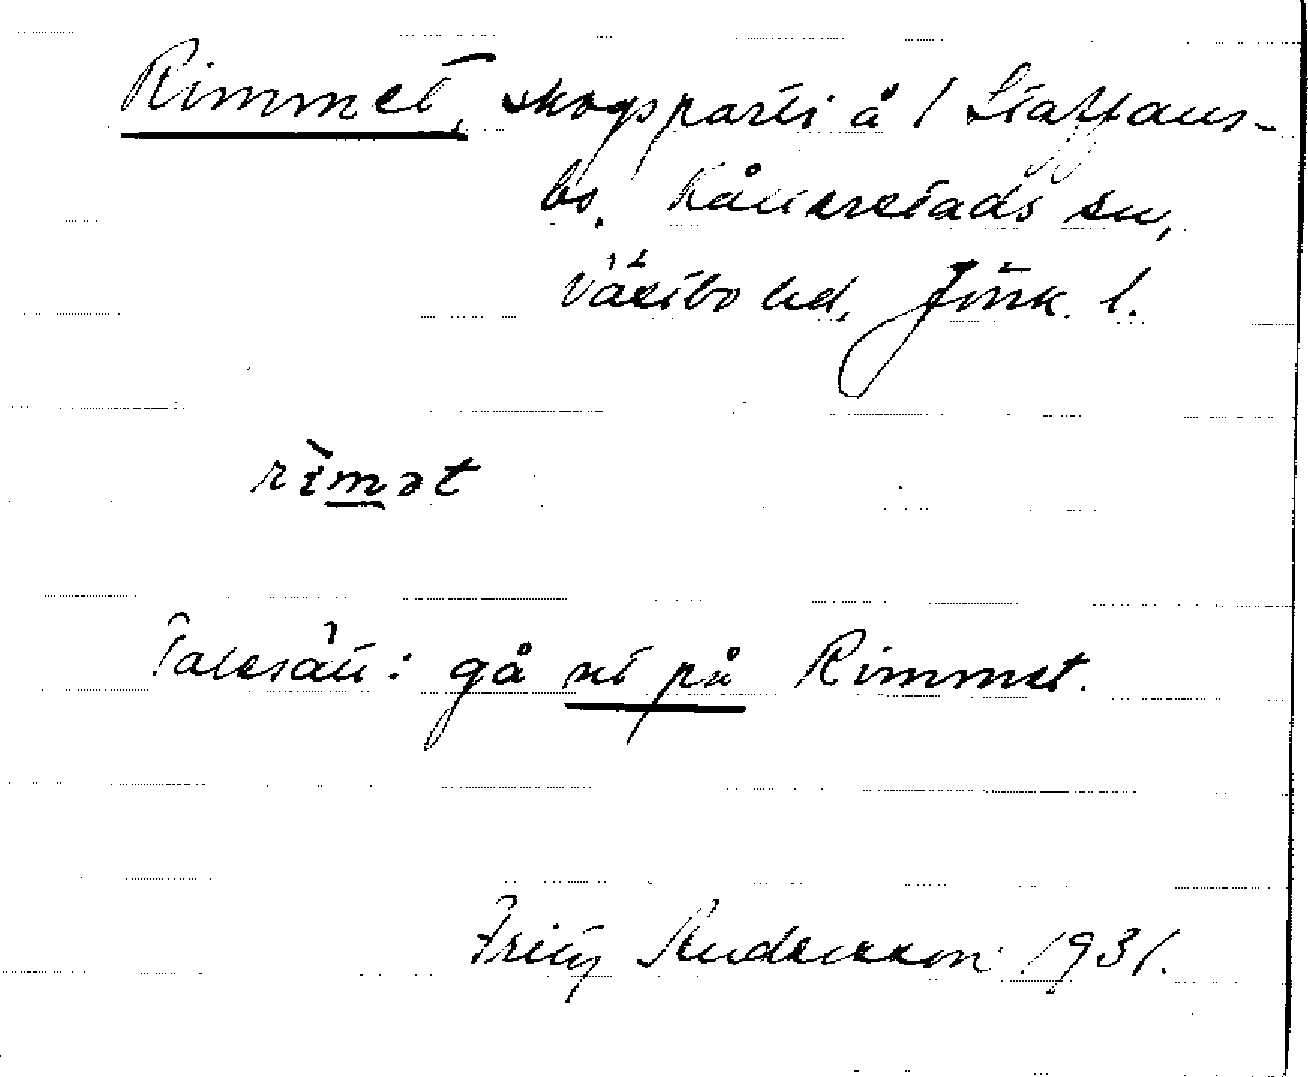 Rimmet, skogsparti å 1 Staffans-
bo. Kållerstads sn,
Västbo hd, Jönk. l.
rìmət
Talesätt: gå ut på Rimmet.
Fritz Andersson 1931.